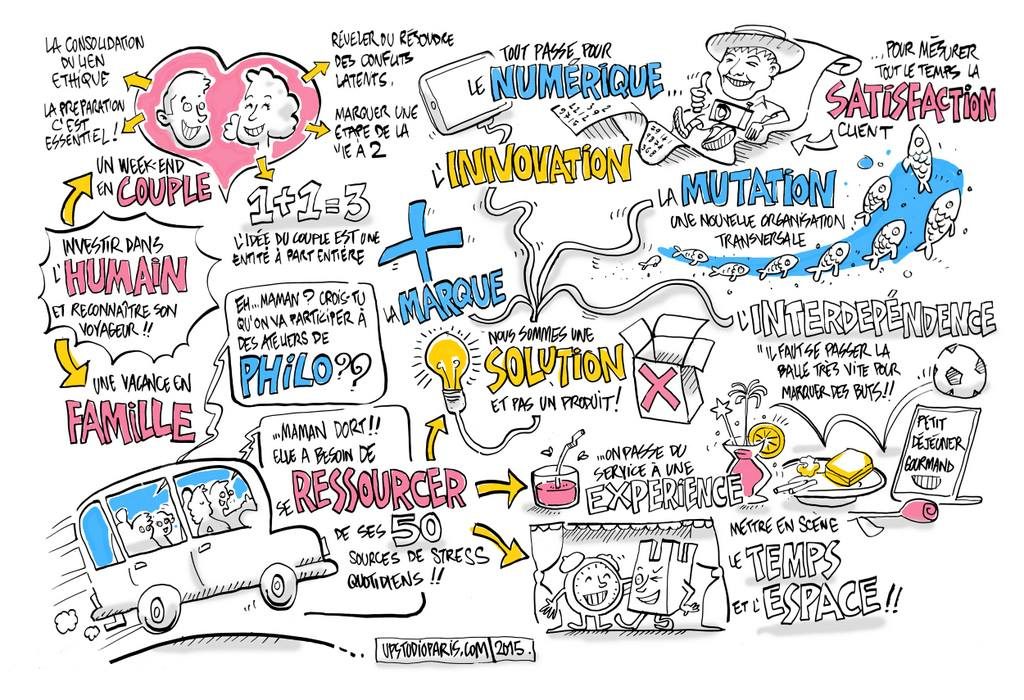 LA CONSOLIDATION
DU LIEN
ETHIQUE
LA PRÉPARATION
C'EST
ESSENTIEL!
RÉVELER OU RÉSOUDRE
DES CONFLITS
LATENTS.
MARQUER UNE
ÉTAPE DE LA
VIE À 2
UN WEEK-END
EN COUPLE
1+1=3
L'IDÉE DU COUPLE EST UNE
ENTITÉ À PART ENTIÈRE
INVESTIR DANS
L'HUMAIN
ET RECONNAÎTRE SON
VOYAGEUR!!
UNE VACANCE EN
FAMILLE
EH...MAMAN? CROIS-TU
QU'ON VA PARTICIPER À
DES ATELIERS DE
PHILO??
...MAMAN DORT!!
ELLE A BESOIN DE
SE RESSOURCER
DE SES 50
SOURCES DE STRESS
QUOTIDIENS!!
TOUT PASSE POUR
LE NUMÉRIQUE...
L'INNOVATION
...POUR MÉSURER
TOUT LE TEMPS LA
SATISFACTION
CLIENT
LA MUTATION
UNE NOUVELLE ORGANISATION
TRANSVERSALE
LA MARQUE
NOUS SOMMES UNE
SOLUTION
ET PAS UN PRODUIT!
L'INTERDEPÉNDENCE
"IL FAUT SE PASSER LA
BALLE TRES VITE POUR
MARQUER DES BUTS!!
PETIT
DÉJEUNER
GOURMAND
...ON PASSE DU
SERVICE À UNE
EXPERIENCE
METTRE EN SCÈNE
LE TEMPS
ET L'ESPACE!!
UPSTUDIOPARIS.COM | 2015.